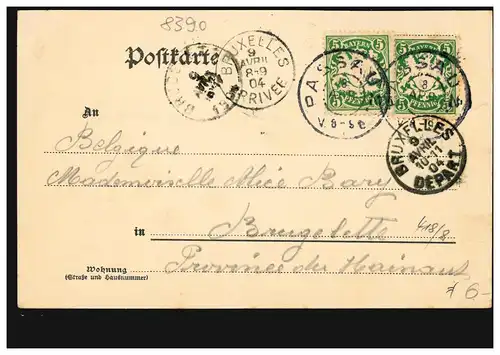 8390
Postkarte
BRUXELLES
9
AVRIL
8-9
04
ARRIVEE
PASSAU
BAYERN
5 5
PFENNIG
BAYERN
5 5
PFENNIG
BRUXELLES
9
AVRIL
10-11
04
DEPART
An
Belgique
Mademoiselle Alice Bary
in
Brugelette
418/8
Province du Hainaut
Wohnung
(Straße und Hausnummer)
6-